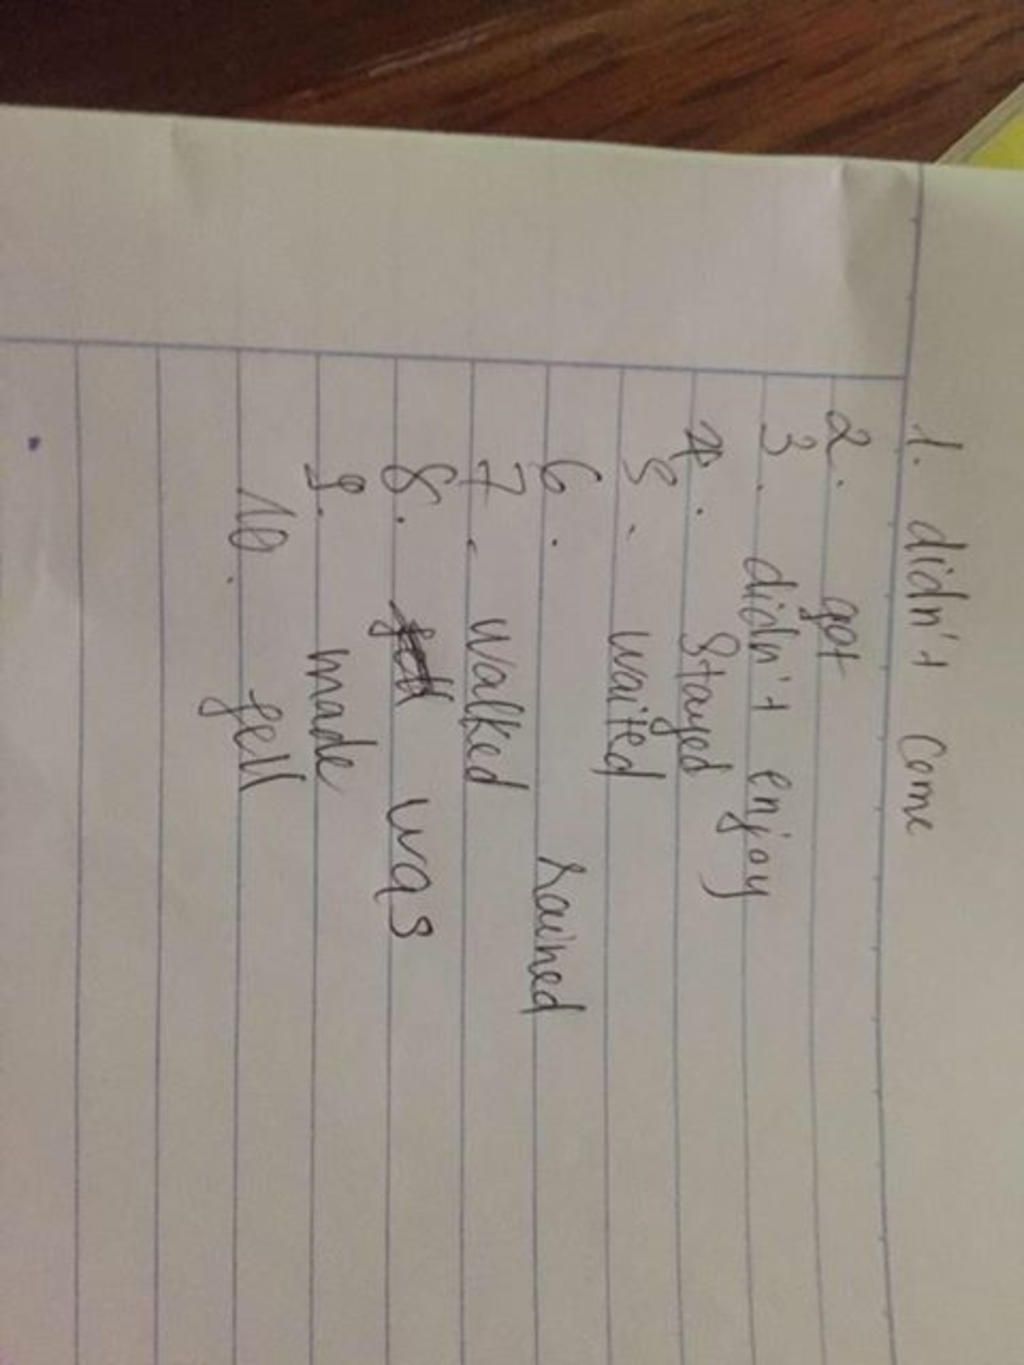 1. didn't come
2. got
3. didn't enjoy
4. stayed
5. waited
6. rained
7. walked
8. was
9. made
10. fell